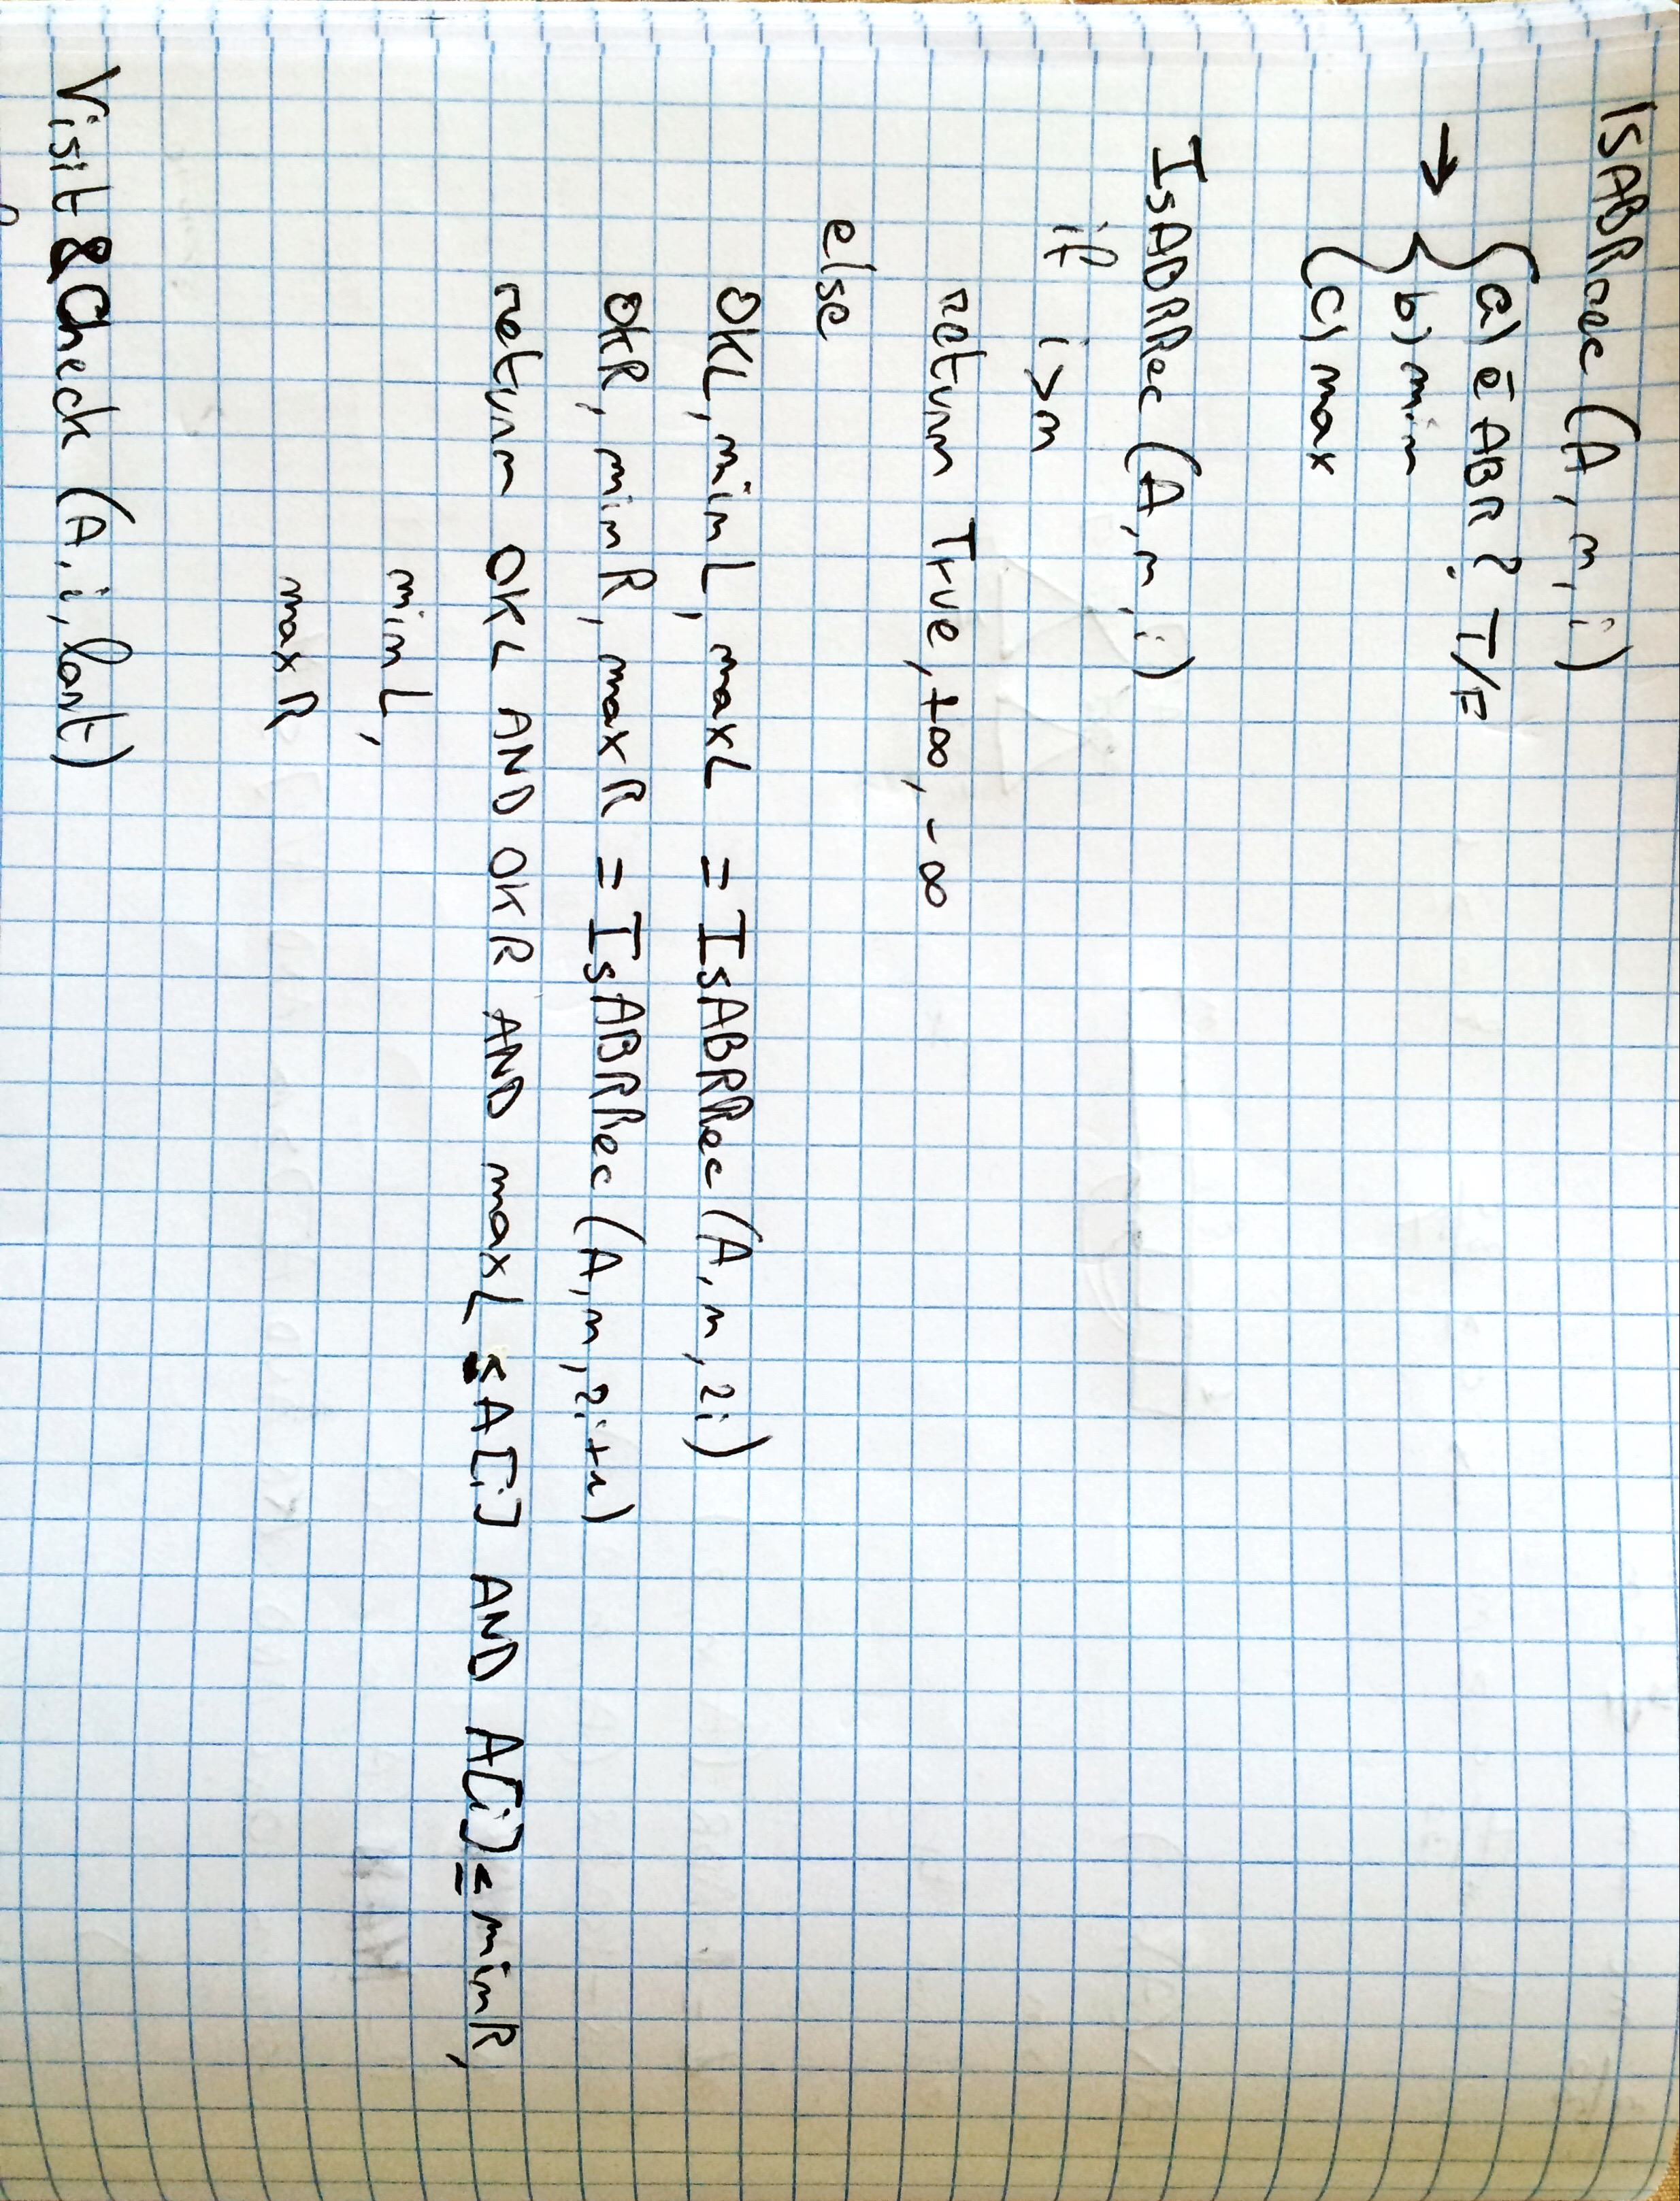 IsABRrec (A, n, i)
a) è ABR? T/F
→ { b) min
c) max
IsABRRec (A, n, i)
if i>n
return True, +∞, -∞
else
OKL, minL, maxL = IsABRRec (A, n, 2i)
OKR, minR, maxR = IsABRRec (A, n, 2i+1)
return OKL AND OKR AND maxL ≤ A[i] AND A[i] ≤ minR,
minL,
maxR
Visit&Check (A, i, last)